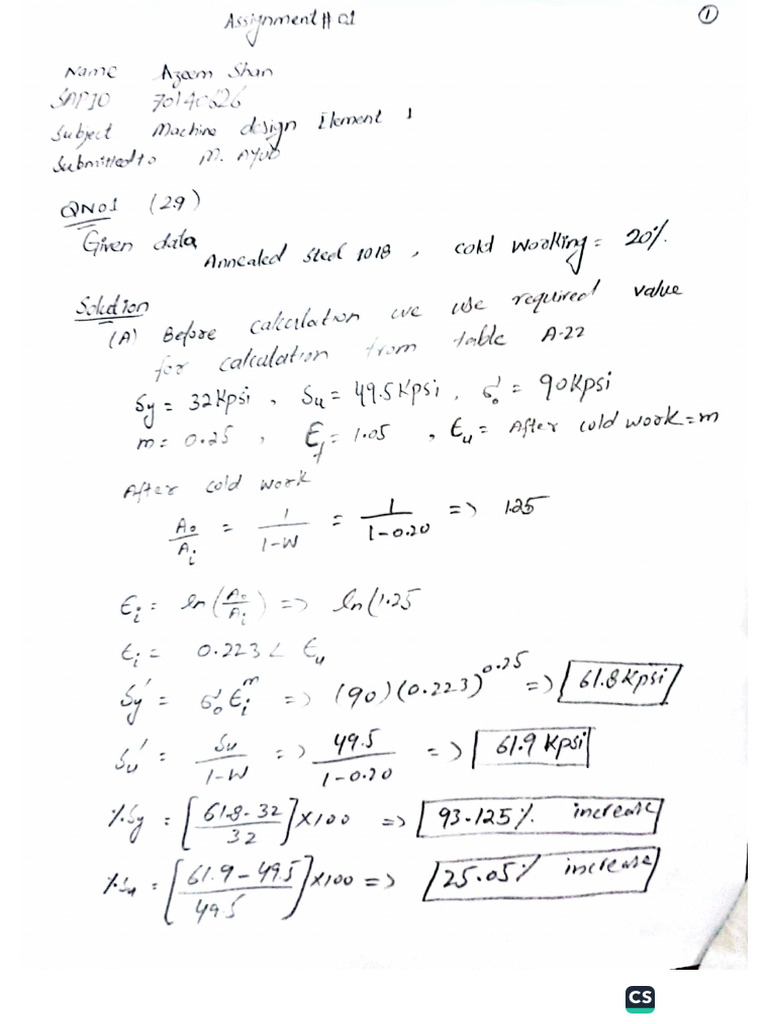 Assignment # 01
①
Name Azeem Shan
SAP ID
Subject Machine design Element 1
Submitted to M. Ayub
QNo1 (2.9)
Given data
Annealed steel 1018 , cold working = 20%.
Solution
(A) Before calculation we use required value
for calculation from table A-22
Sy = 32 Kpsi , Su = 49.5 Kpsi , σ₀' = 90 Kpsi
m = 0.25 , Ɛf = 1.05 , Ɛu = After cold work = m
After cold work
A₀/Ai = 1/(1-W) = 1/(1-0.20) => 1.25
Ɛi = ln(A₀/Ai) => ln(1.25
Ɛi = 0.223 < Ɛu
Sy' = σ₀' Ɛi^m => (90)(0.223)^0.25 => 61.8 Kpsi
Su' = Su/(1-W) => 49.5/(1-0.20) => 61.9 Kpsi
%Sy = [(61.8-32)/32] x100 => 93.125% increase
%Su = [(61.9-49.5)/49.5] x100 => 25.05% increase
CS